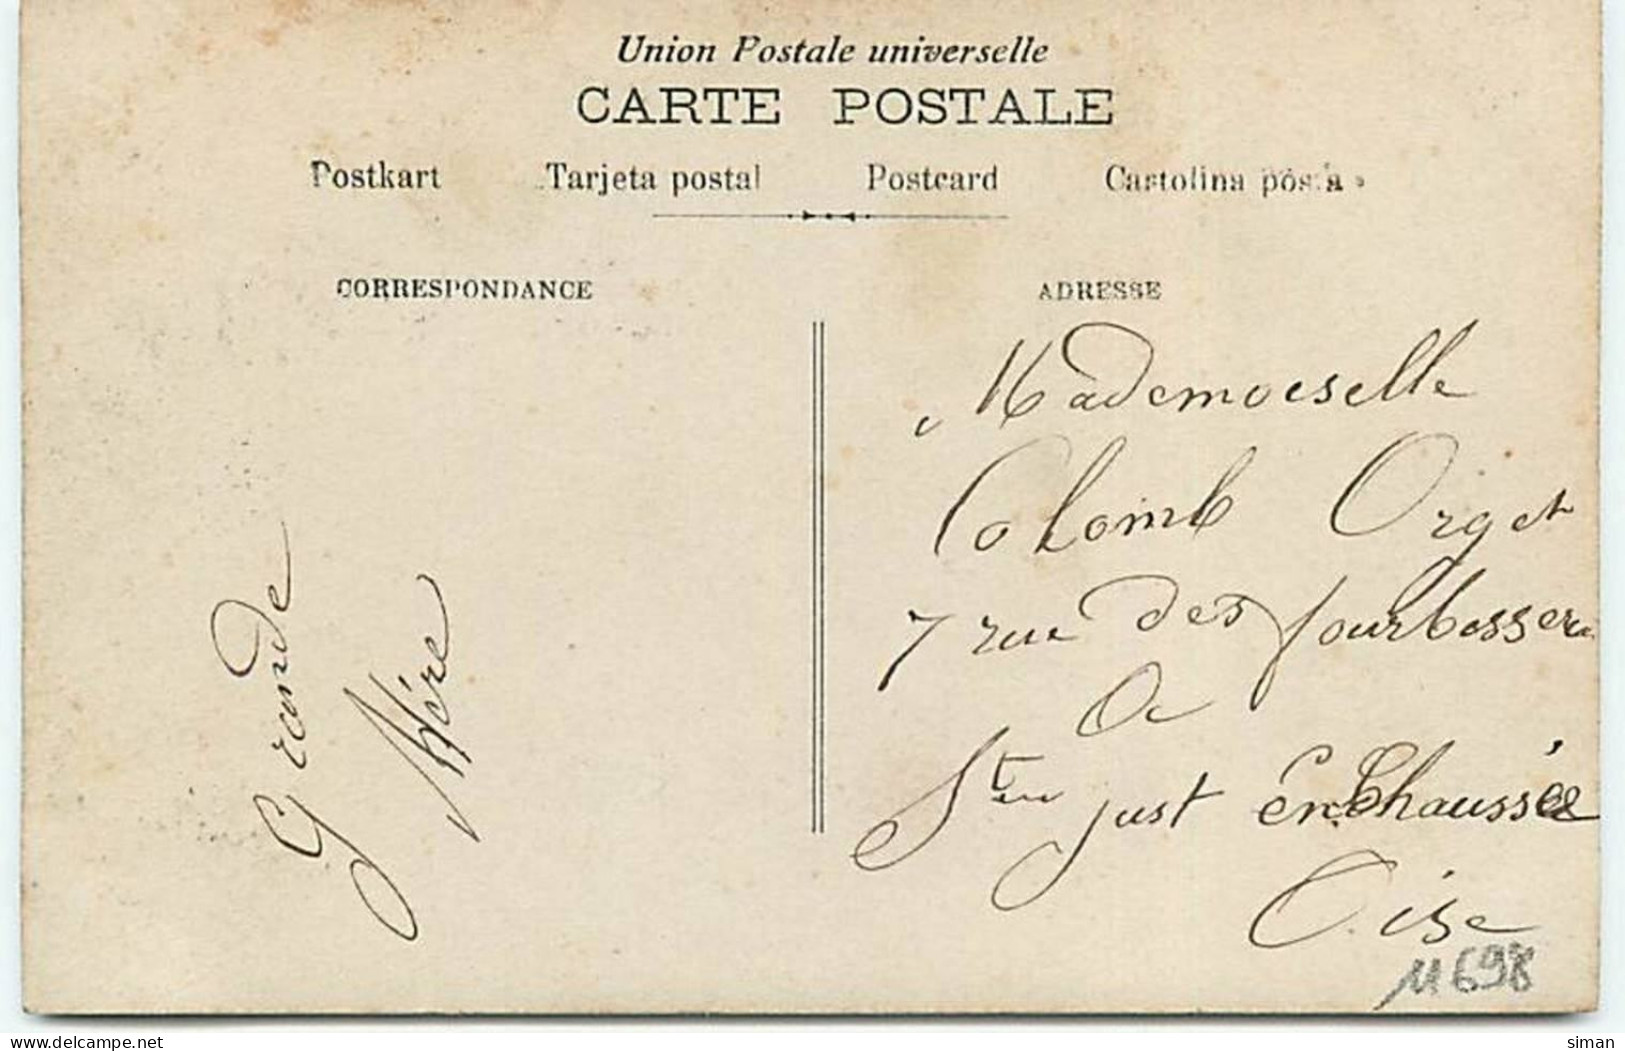 Union Postale universelle
CARTE POSTALE
Postkart Tarjeta postal Postcard Cartolina posta
CORRESPONDANCE
ADRESSE
Grande
Mère
Mademoiselle
Colomb Orget
7 rue des
a
St just En Chaussée
Oise
11698
delcampe.net
siman